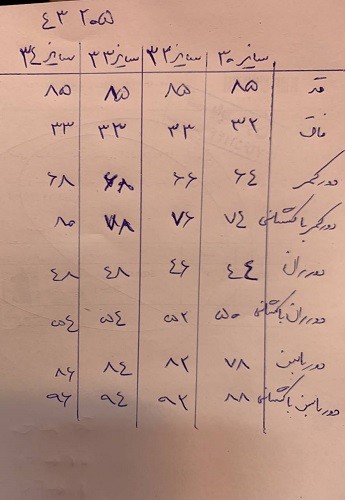 ۴۳ ۲۰۵
سایز ۳۰ سایز ۳۲ سایز ۳۳ سایز ۳۴
قد ۸۵ ۸۵ ۸۵ ۸۵
فاق ۳۲ ۳۳ ۳۳ ۳۳
دور کمر ۶۴ ۶۶ ۶۸ ۶۸
دور کمر با کشسانی ۷۴ ۷۶ ۷۸ ۸۰
دور ران ۴۴ ۴۶ ۴۸ ۴۸
دور ران با کشسانی ۵۰ ۵۲ ۵۴ ۵۴
دور باسن ۷۸ ۸۲ ۸۴ ۸۶
دور باسن با کشسانی ۸۸ ۹۲ ۹۴ ۹۶